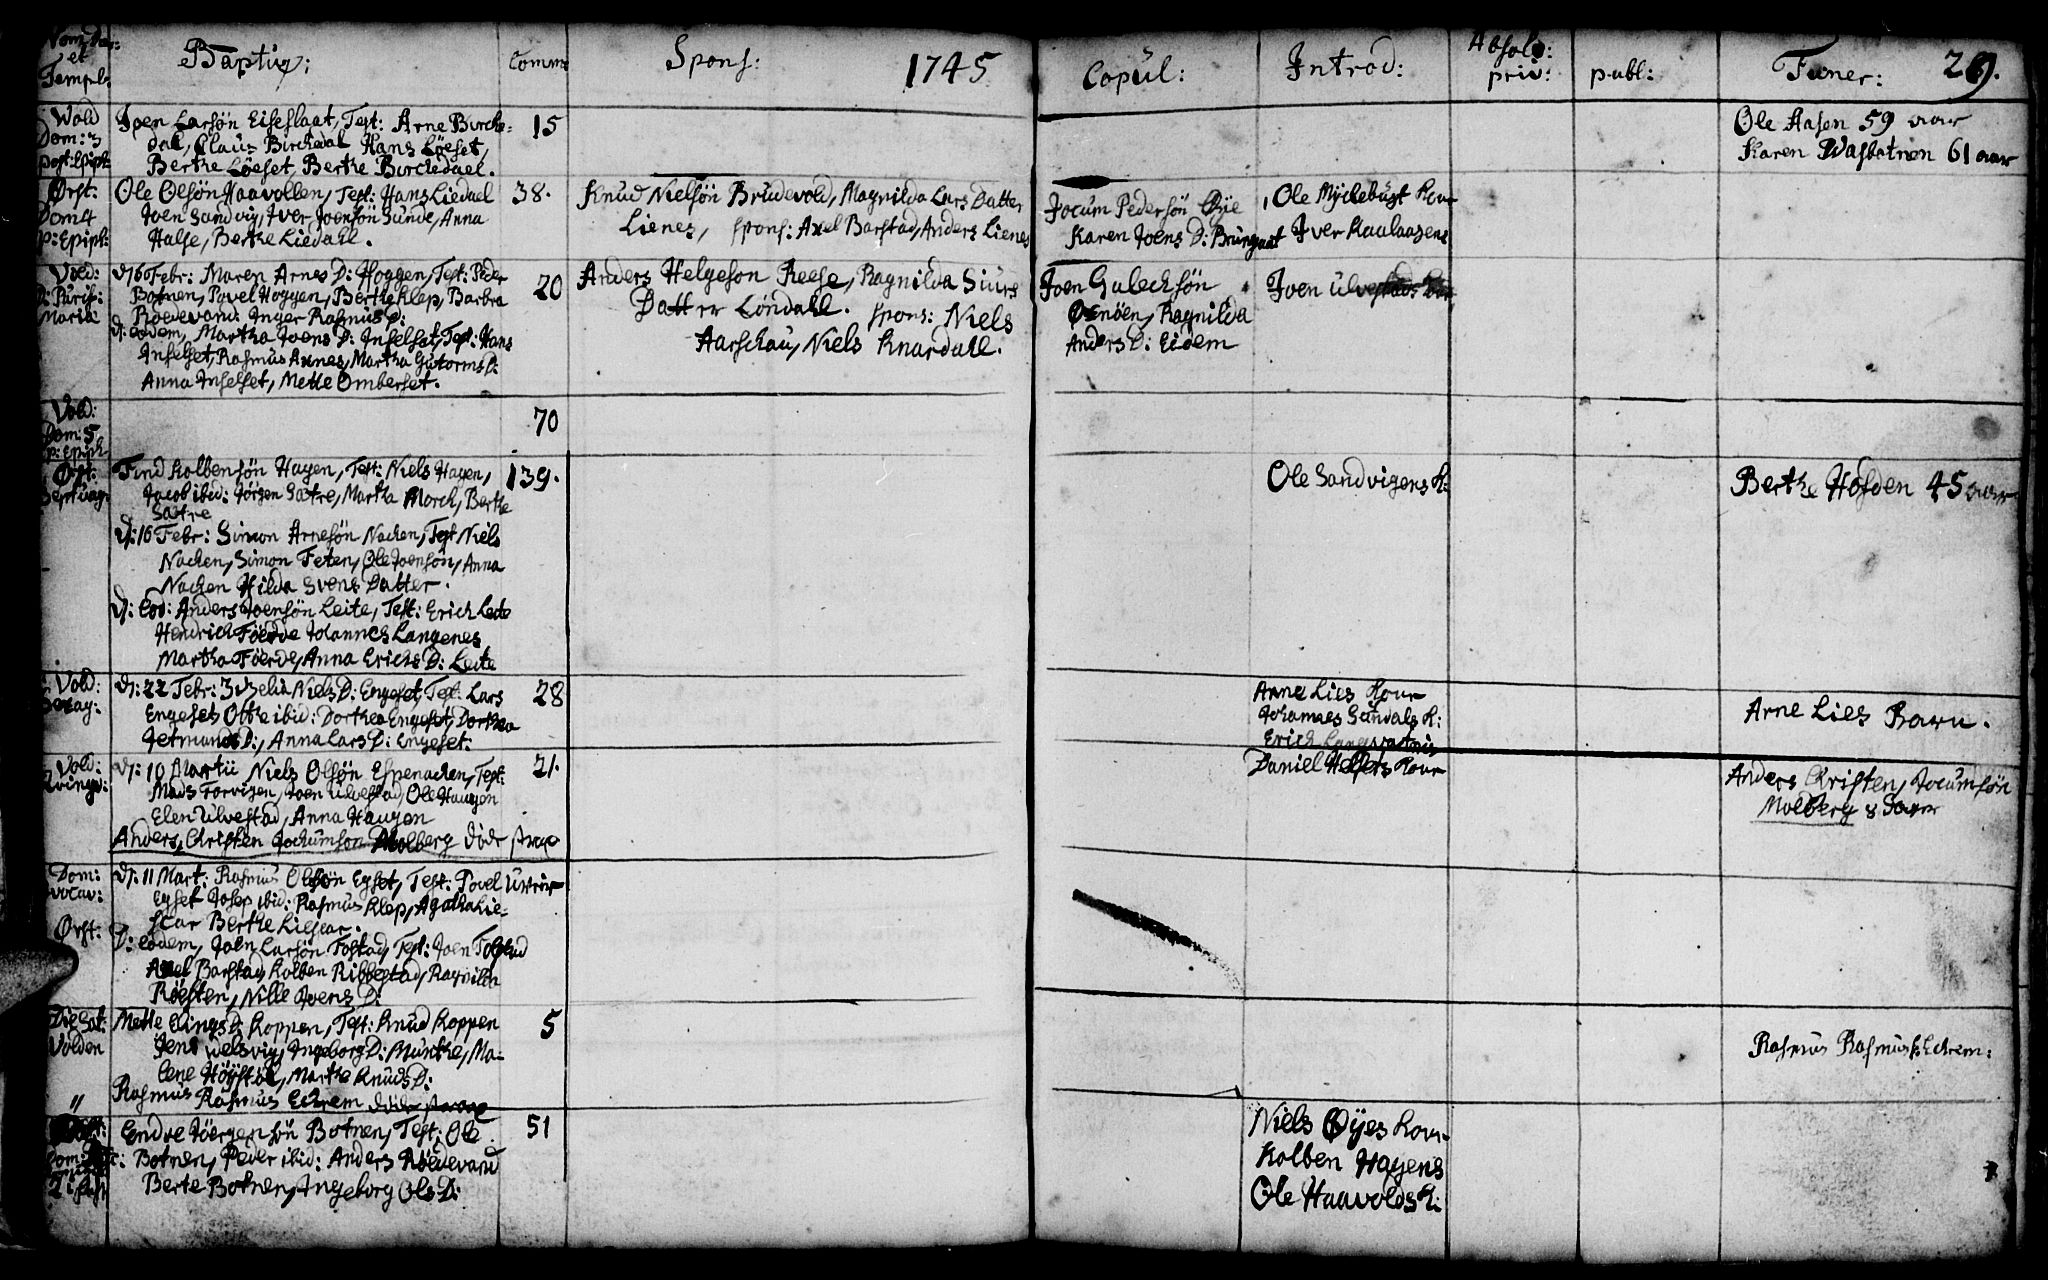 Nom Dier:
et
Templ:
Baptiz:
Comm:
Spons:
1745
Copul:
Introd:
Absol:
priv:
publ:
Funer:
29.
Vold
Dom: 3
post: Epiph:
Joen Larsøn Eiseslaat, Test: Arne Birche=
dal, Claus Birchedal Hans Løeset,
Berthe Løeset, Berthe Birchedael.
15
Ole Aasen 59 aar
Karen Wasbotnen 61 aar
Ørst:
Dom 4
p: Epiph:
Ole Olsøn Haavollen, Test: Hans Liedael
Joen Sandvig, Iver Joensøn Sunde, Anna
Halse, Berthe Liedahl.
38.
Knud Nielsøn Brudevold, Magnilda Lars Datter
Lienes, spons: Axel Barstad, Anders Lienes
Jocum Pedersøn Øye
Karen Joens D: Brungaat
Ole Myclebust Kour
Iver Kaalaasens
Vold:
D: Purif:
Maria
D: 6 Febr: Maren Arnes D: Hoggen, Test: Peder
Botnen, Povel Hoggen, Berthe Klep, Barbra
Roedevand: Inger Rasmus D:
D: eodem, Martha Joens D: Inselset, Test: Hans
Inselset, Rasmus Aunes, Martha Gutorms D:
Anna Inselset, Mette Omberset.
20
Anders Helgeson Reese, Ragnilda Siurs
Datter Løndahl. spons: Niels
Aarschau, Niels Knardahl.
Joen Gulecksøn
Øenøen, Ragnilda
Anders D: Eidem
Joen Ulvestads Kour
Vold:
Dom: 5
p: Epiph
70
Ørst:
Septuag:
Find Kolbensøn Hagen, Test: Niels Hagen,
Jacob ibid: Jørgen Sætre, Martha Morch, Berthe
Sætre
D: 16 Febr: Simon Arnesøn Nachen, Test Niels
Nachen, Simon Feten, Ole Joensøn, Anna
Nachen Hilda Svens Datter.
D: Eod: Anders Joensøn Leite, Test: Erich Leite
Hendrich Föerde Johannes Langenes
Martha Föerde, Anna Erichs D: Leite
139.
Ole Sandvigens K:
Berthe Hofden 45 aar
Vold:
Sexag:
D: 22 Febr: Zidzelia Niels D: Engeset, Test: Lars
Engeset Otte ibid: Dorthea Engeset, Dorthea
Jetmunds D:, Anna Lars D: Engeset.
28
Arne Lies Kour
Johannes Sundals K:
Erich Langvatnis
Arne Lies Barn.
Vold:
Qvinqv:
D: 10 Martii Niels Olsøn Espenachen, Test:
Mads Torvigen, Joen Ulvestad, Ole Haugen
Elen Ulvestad, Anna Haugen
Anders, Christen Jochumson Molberg døde strax
21.
Daniel Helsets Kour
Anders Christen, Jocumsøn
Molberg 8 Dager
Dom:
Invocav:
Ørst:
D: 11 Mart: Rasmus Olssøn Egset, Test: Povel
Egset Josep ibid: Rasmus Klep, Agatha Lie=
scar Berthe Liescar.
D: eodem, Joen Larsøn Folstad, Test: Joen Folstad
Axel Barstad, Kolben Ribbestad, Ragnilda
Røesten, Nille Ivens D:
Die Sat:
Volden
Mette Elings D: Koppen, Test: Knud Koppen
Jens Welsvig, Ingeborg D: Munthe, Ma=
lene Høystøl, Marthe Knuds D:
Rasmus Rasmus Eckrem døde strax
5
Rasmus Rasmuss: Eckrem:
Endre Jöergensøn Botnen, Test: Ole
Botnen, Peder ibid: Anders Röedevand
Berte Botnen, Ingeborg Ols D:
51
Niels Øyes Kour
Kolben Hagens
Ole Haavolds K: